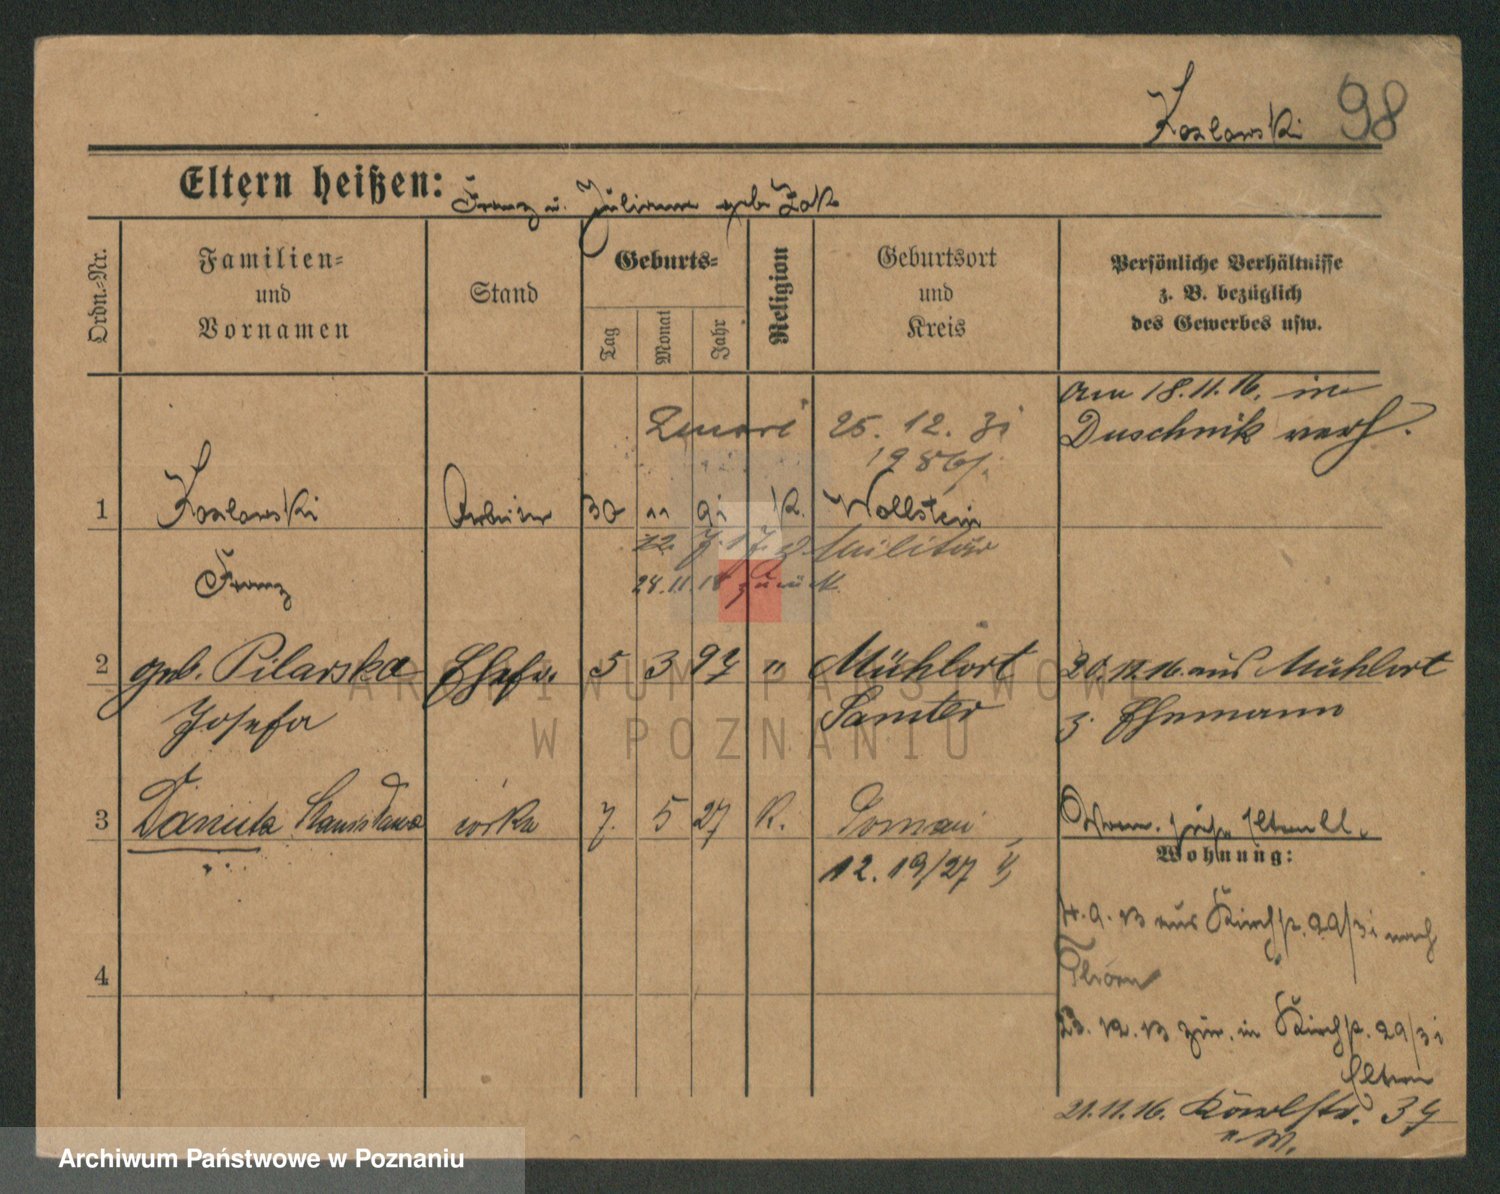 Kozlowski 98
Eltern heißen: Franz u. Julianna geb. Żak
Ordn.-Nr.
Familien-
und
Vornamen
Stand
Geburts-
Tag
Monat
Jahr
Religion
Geburtsort
und
Kreis
Persönliche Verhältnisse
z. B. bezüglich
des Gewerbes usw.
am 18.11.16. in
Duschnik verh.
Zmarł 25. 12. 31
1986/.
1 Kozlowski Arbeiter 30 11 91 K. Wollstein
Franz
12. 7. 17. z. Militär
28.11.18 zurück
2 geb. Pilarska Ehefr. 5 3 97 " Mühlort
Josefa
Samter
20.12.16. aus Mühlort
z. Ehemann
3 Danuta Stanisława córka 7. 5 27 K. Poznań
12. 19/27
Wohnung:
4.9.13 aus Kirchstr. 29/31 nach
Thorn
4
23.12.13 zur. in Kirchstr. 29/31
Eltern
21.11.16. 37
ARCHIWUM PAŃSTWOWE
W POZNANIU
Archiwum Państwowe w Poznaniu